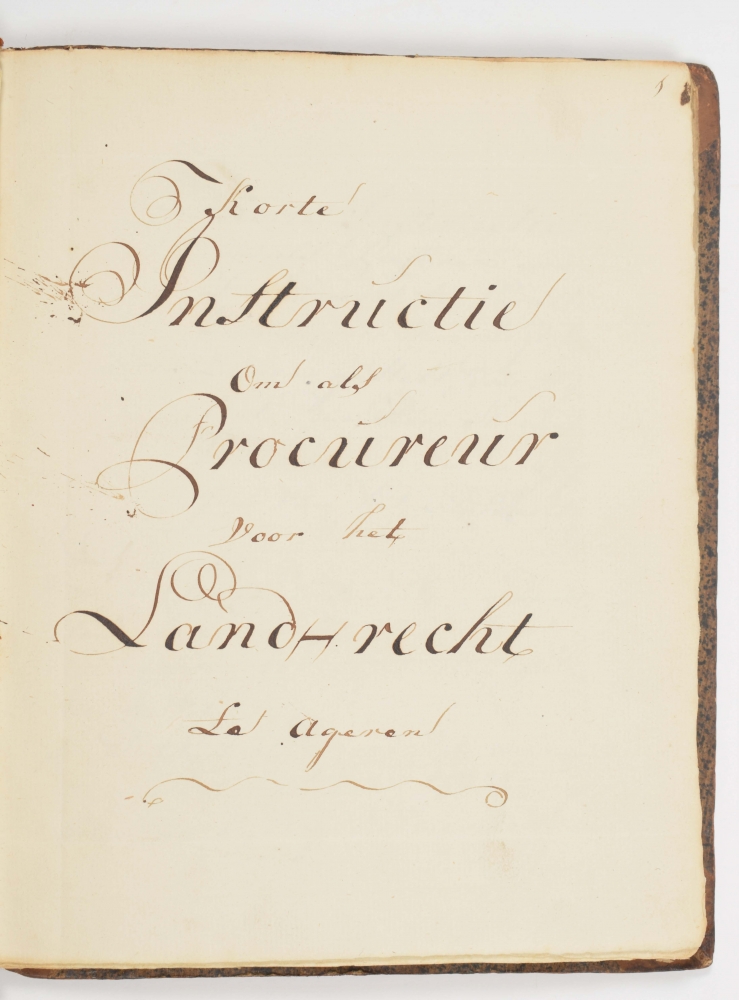 Korte
Instructie
Om als
Procureur
voor het
Land-recht
te ageren